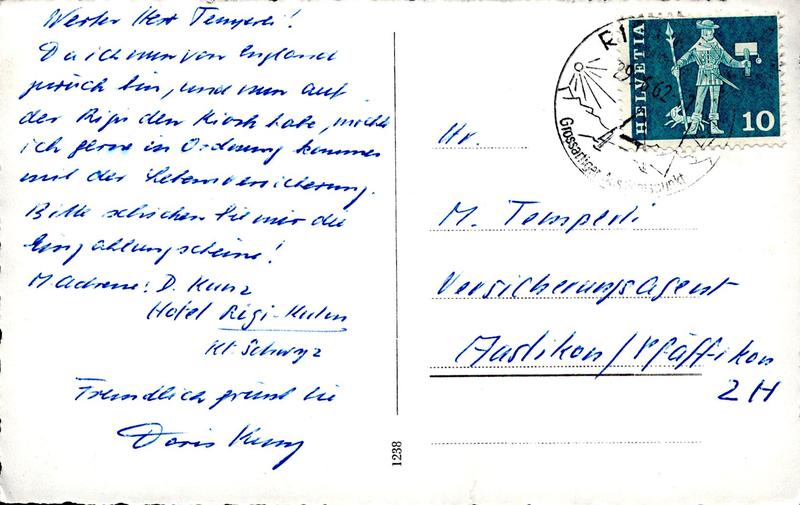 Werter Herr Temperli!
Da ich nun von England
zurück bin, und nun auf
der Rigi den Kiosk habe, möchte
ich gerne in Ordnung kommen
mit der Lebensversicherung.
Bitte schicken Sie mir die
Einzahlungsscheine!
M. Adresse: D. Kunz
Hotel Rigi-Kulm
Kt. Schwyz
Freundlich grüsst Sie
Doris Kunz
1238
HELVETIA
10
29. 62
Grossartiger Aussichtspunkt
Hr.
M. Temperli
Versicherungsagent
Aastikon / Pfäffikon
ZH